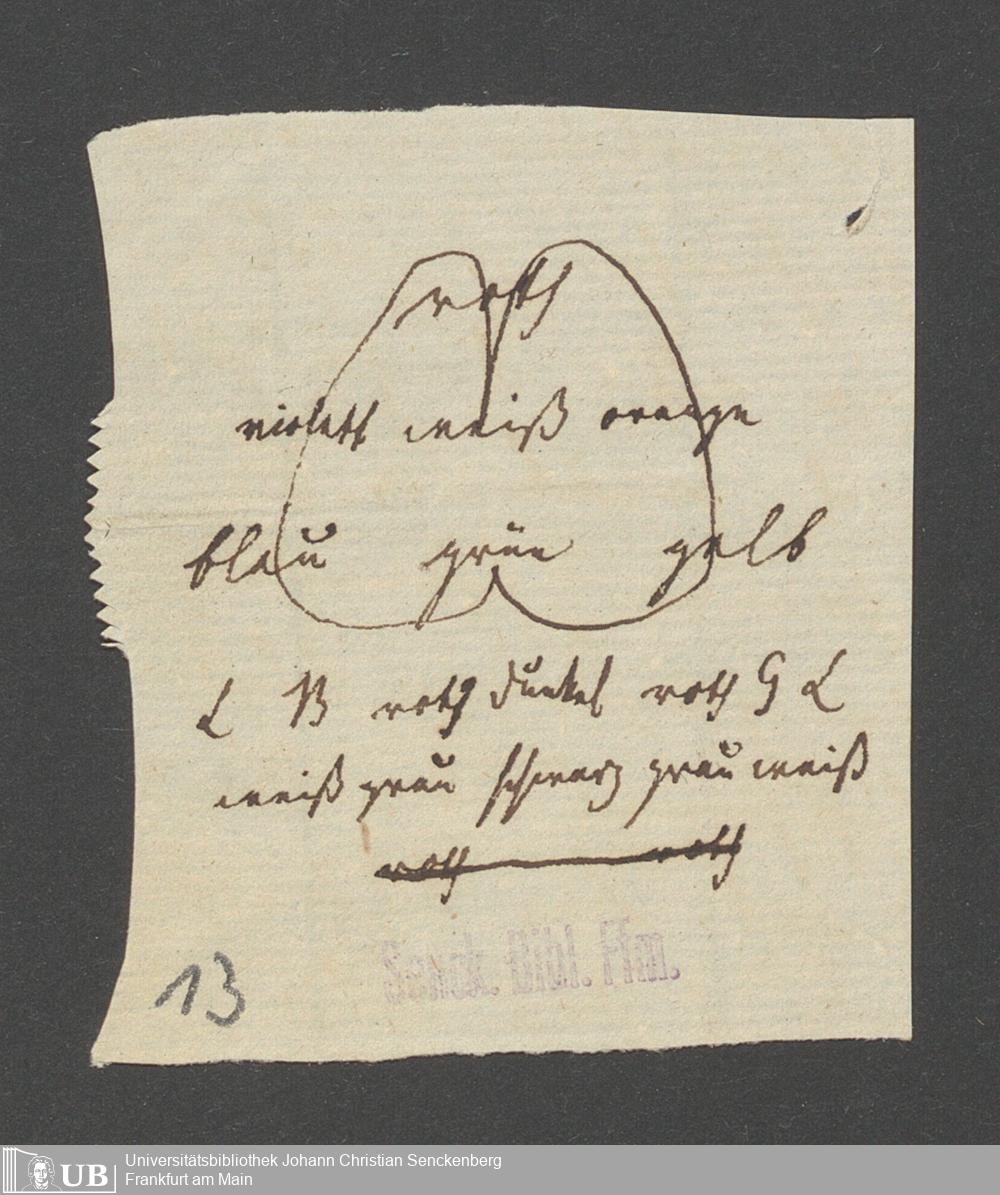 roth
violett weiß orange
blau grün gelb
L B roth dunkel roth G L
weiß grau schwarz grau weiß
roth roth
Senck. Bibl. Ffm.
13
UB Universitätsbibliothek Johann Christian Senckenberg
Frankfurt am Main